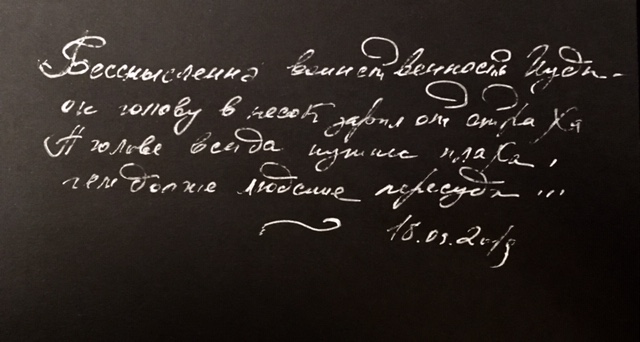 Бессмысленна воинственность Иуды -
он голову в песок зарыл от страха
А голове всегда нужнее плаха,
чем долже людские пересуды ...
18.09.2019